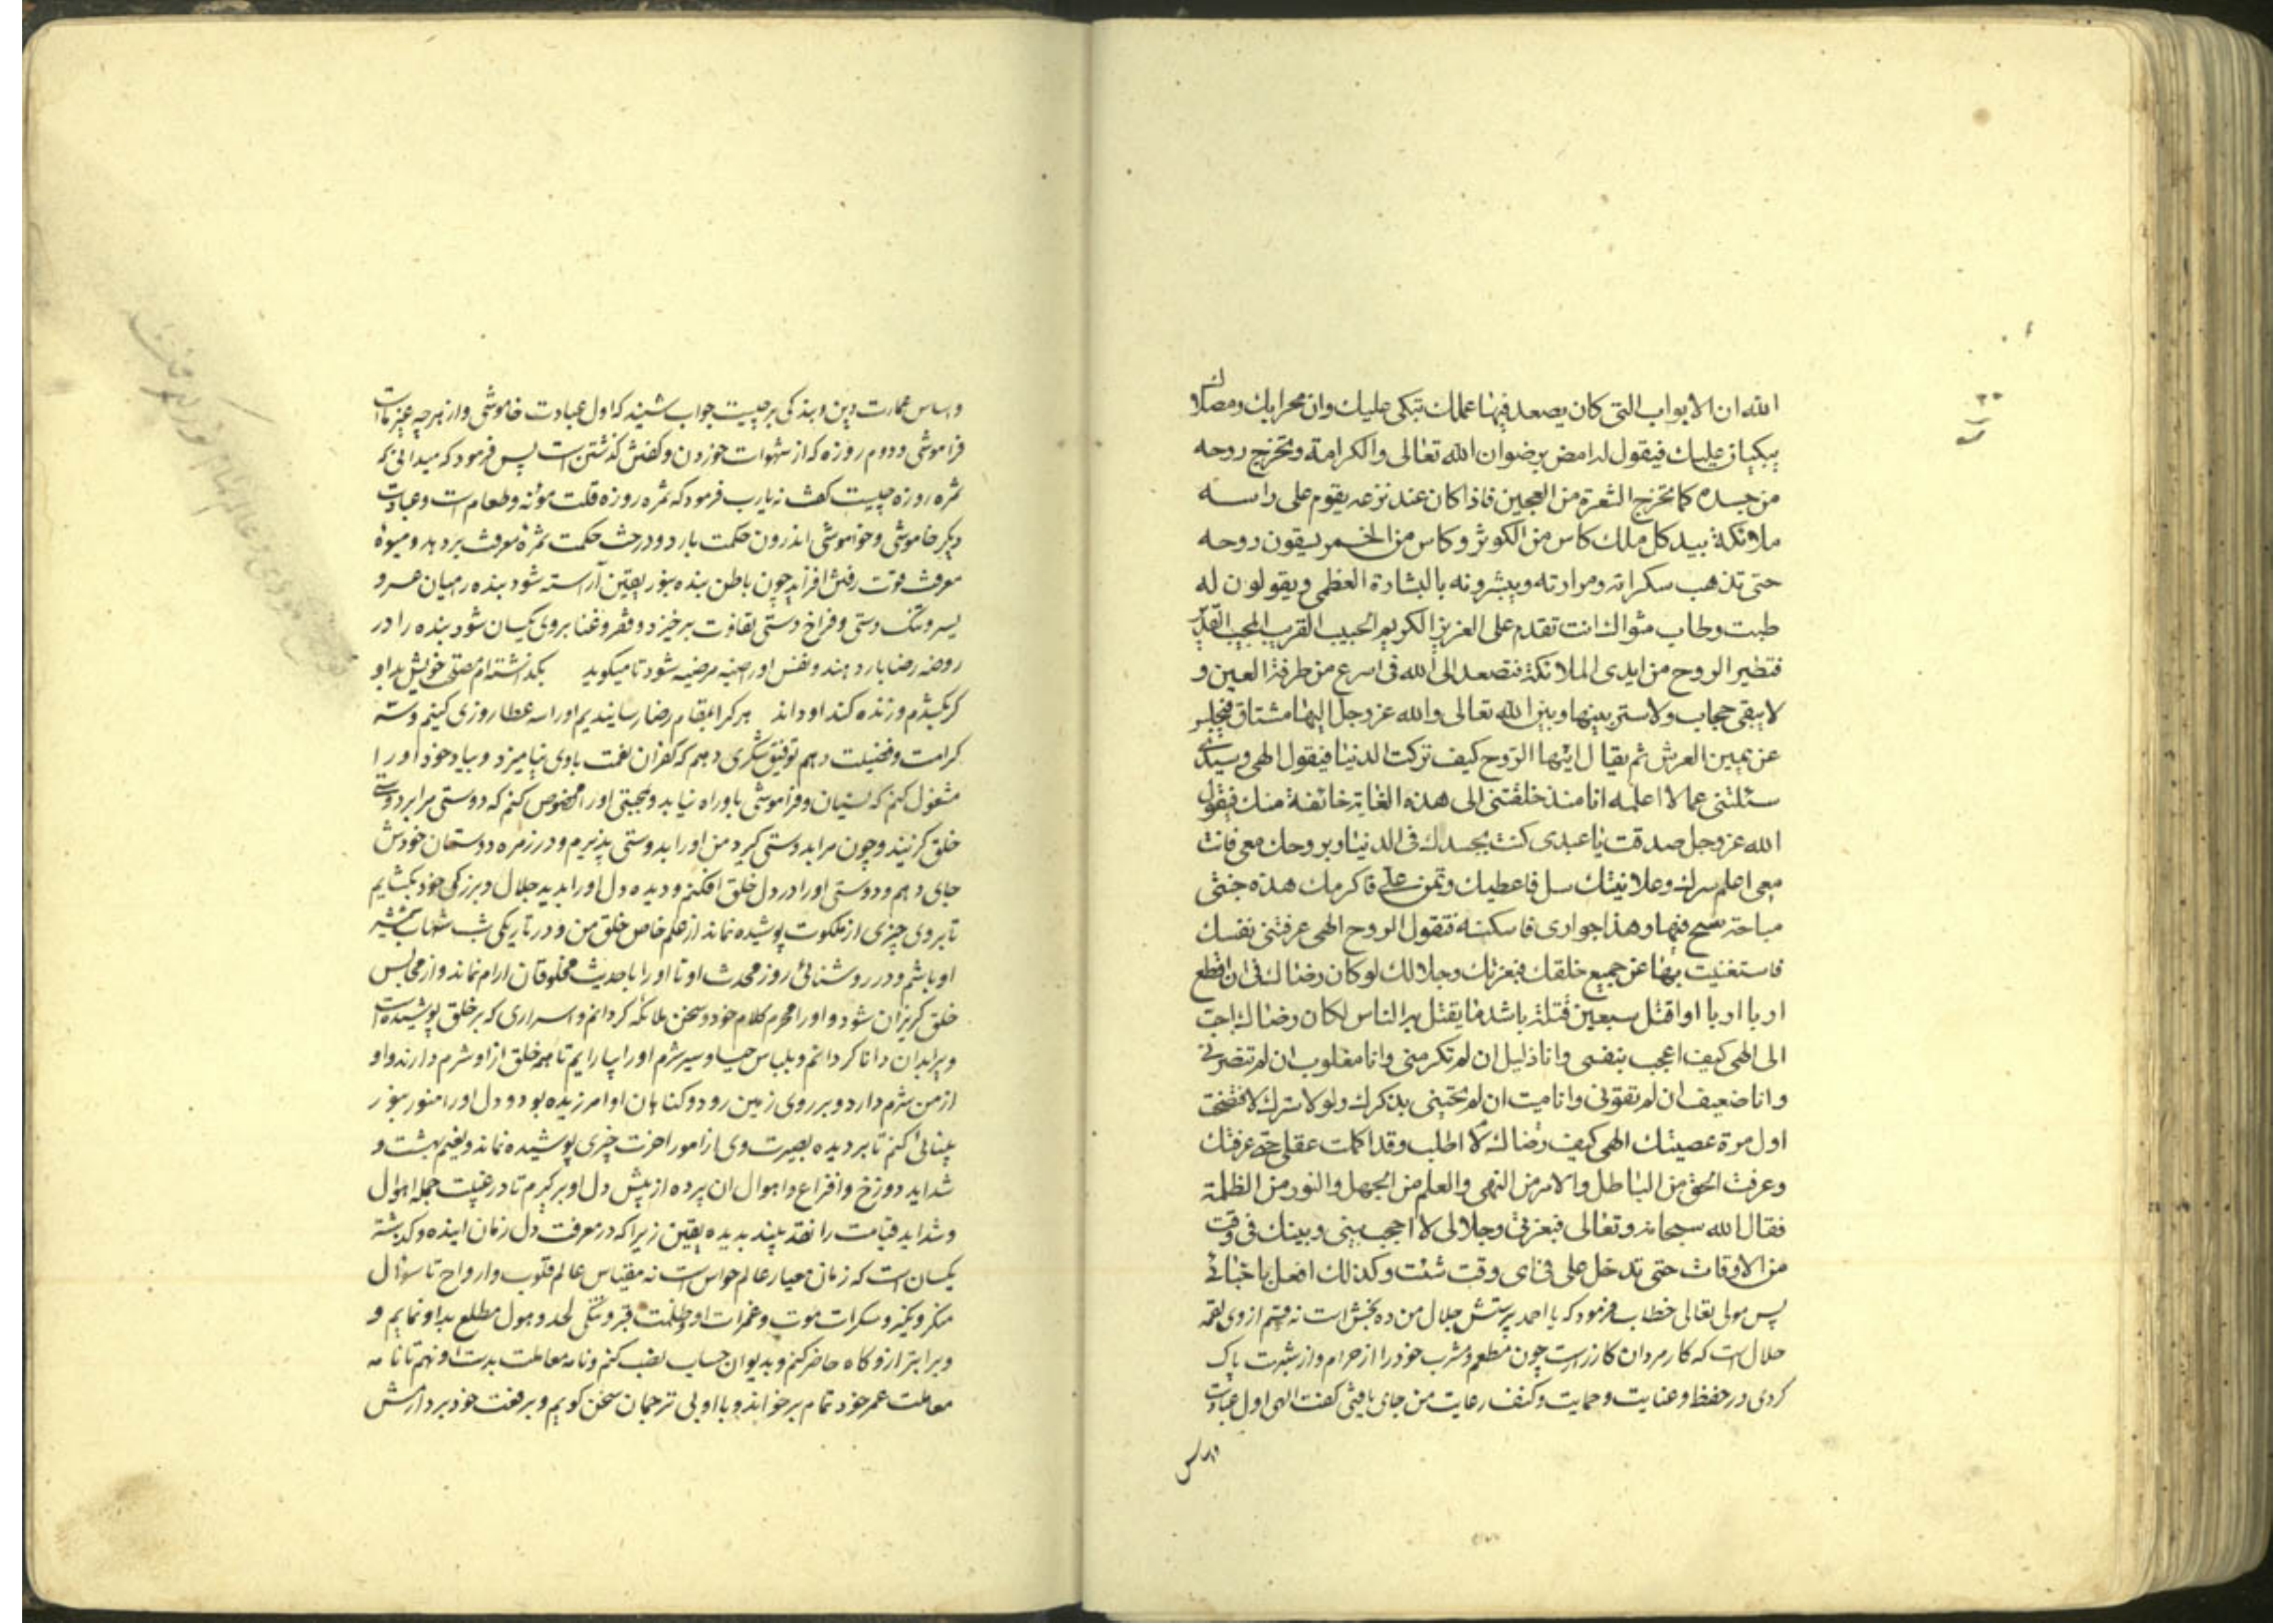 الله ان الابواب التی كان يصعد فيها عملك تبكی عليك وان محرابك ومصلاك
يبكيان عليك فيقول له امض برضوان الله تعالی والكرامة وتخرج روحه
من جسده كما تخرج الشعرة من العجين فاذا كان عند نزعه يقوم علی راسه
ملائكة بيد كل ملك كاس من الكوثر وكاس من الخمر يسقون روحه
حتی تذهب سكراته ومرارته ويبشرونه بالبشارة العظمی ويقولون له
طبت وطاب مثواك انت تقدم علی العزيز الكريم الحبيب القريب المجيب
فتطير الروح من ايدی الملائكة فتصعد الی الله فی اسرع من طرفة العين و
لا يبقی حجاب ولا ستر بينها وبين الله تعالی والله عز وجل اليها مشتاق فيجلس
عن يمين العرش ثم يقال ايتها الروح كيف تركت الدنيا فيقول الهی وسيدی
سئلتنی عما لا اعلمه انا منذ خلقتنی الی هذه الغاية خائفة منك فيقول
الله عز وجل صدقت يا عبدی كنت بجسدك فی الدنيا وبروحك معی فانت
معی اعلم سرك وعلانيتك سل فاعطيك وتمن علی فاكرمك هذه جنتی
مباحة فيها وهذا جواری فاسكنه فتقول الروح الهی عرفتنی نفسك
فاستغنيت بها عن جميع خلقك فبعزتك وجلالك لو كان رضاك فی ان اقطع
اربا اربا او اقتل سبعين قتلة باشد ما يقتل به الناس لكان رضاك احب
الی الهی كيف اعجب بنفسی وانا ذليل ان لم تكرمنی وانا مغلوب ان لم تنصرنی
وانا ضعيف ان لم تقونی وانا ميت ان لم تحيينی بذكرك ولولا سترك لافتضحت
اول مرة عصيتك الهی كيف رضاك لا اطلب وقد اكملت عقلی حتی عرفتك
وعرفت الحق من الباطل والامر من النهی والعلم من الجهل والنور من الظلمة
فقال الله سبحانه وتعالی فبعزتی وجلالی لا احجب بينی وبينك فی وقت
من الاوقات حتی تدخل علی فی ای وقت شئت وكذلك افعل باحبائی
پس مولی تعالی خطاب فرمود که یا احمد پرستش جلال من ده بخش است نه قسم از وی لقمه
حلال است که کار مردان کار زر است چون مطعم و مشرب خود را از حرام و از شبهت پاک
کردی در حفظ و عنایت و حمایت و کنف رعایت من جای یافتی گفت الهی اول عبادت
واساس
واساس عمارت دین و بندگی بر چیست جواب شنید که اول عبادت خاموشی و از هرچه غیر ماست
فراموشی و دوم روزه که از شهوات خوردن و گذشتن است پس فرمود که میدانی که
ثمره روزه چیست گفت نه یارب فرمود که ثمره روزه قلت مؤنه و طعام است و عبادت
دیگر خاموشی و خواموشی اندرون حکمت بارد و درخت حکمت ثمره معرفت بردهد و میوه
معرفت قوت افزاید چون باطن بنده بنور یقین آراسته شود بنده را میان عسر و
یسر و تنگ دستی و فراخ دستی تفاوت برخیزد و فقر و غنا بر وی یکسان شود بنده را در
روضه رضا بار دهند و نفس او راضیه مرضیه شود تا میگوید بگذاشته‌ام خویش بدو
گر بکشدم ور زنده کند او داند هر که را بمقام رضا رسانیدیم او را سه عطا روزی کنیم
کرامت و فضیلت دهم توفیق شکری دهم که کفران نعمت با وی نیامیزد و بیاد خود او را
مشغول کنم که نسیان و فراموشی باو راه نیابد و بمحبتی او را مخصوص کنم که دوستی مرا بر دوستی
خلق گزیند و چون مرا بدوستی گیرد من او را بدوستی پذیرم و در زمره دوستان خودش
جای دهم و دوستی او را در دل خلق افکنم و دیده دل او را بدید جلال و بزرگی خود بگشایم
تا بر وی چیزی از ملکوت پوشیده نماند از علم خاص خلق من و در تاریکی شب
او باشم و در روشنائی روز محدث او تا او را با حدیث مخلوقان ارام نماند و از مجالس
خلق گریزان شود و او را محرم کلام خود و سخن ملائکه گردانم و اسراری که بر خلق پوشیده است
ویرا بدان دانا گردانم و بلباس حیا و شرم او را بیارایم تا همه خلق از او شرم دارند و او
از من شرم دارد و بر روی زمین رود و گناهان او امرزیده بود و دل او را منور بنور
بینائی کنم تا بر دیده بصیرت وی از امور اخرت چیزی پوشیده نماند و نعیم بهشت و
شداید دوزخ و افزاع و اهوال ان پرده از پیش دل او برگیرم تا در غیبت جمله اهوال
و شداید قیامت را نقد بیند بدیده یقین زیرا که در معرفت دل زمان اینده و گذشته
یکسان است که زمان معیار عالم حواس است نه مقیاس عالم قلوب و ارواح تا سؤال
منکر و نکیر و سکرات موت و غمرات او و ظلمت قبر و تنگی لحد و هول مطلع بدو نمایم و
ویرا بترازوگاه حاضر کنم و بدیوان حساب نصب کنم و نامه معاملت بدست او نهم تا نامه
معاملت عمر خود تمام برخواند و با او بی ترجمان سخن گویم و برفعت خود بردارمش